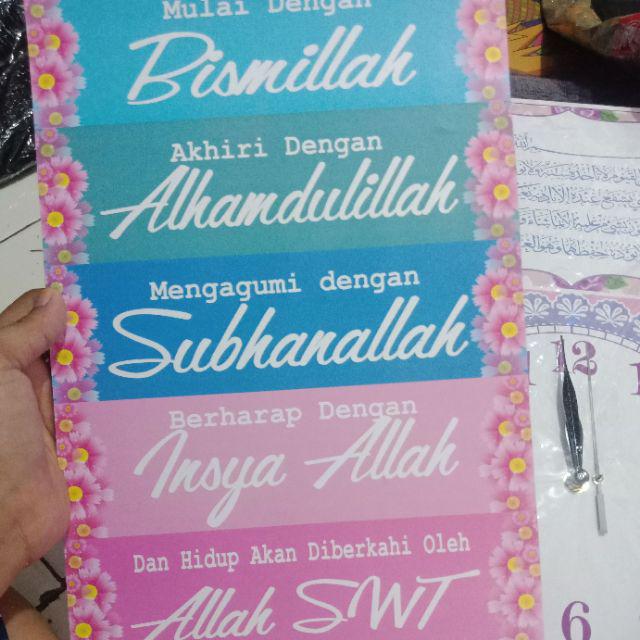 Mulai Dengan
Bismillah
Akhiri Dengan
Alhamdulillah
Mengagumi dengan
Subhanallah
Berharap Dengan
Insya Allah
Dan Hidup Akan Diberkahi Oleh
Allah SWT
12
6